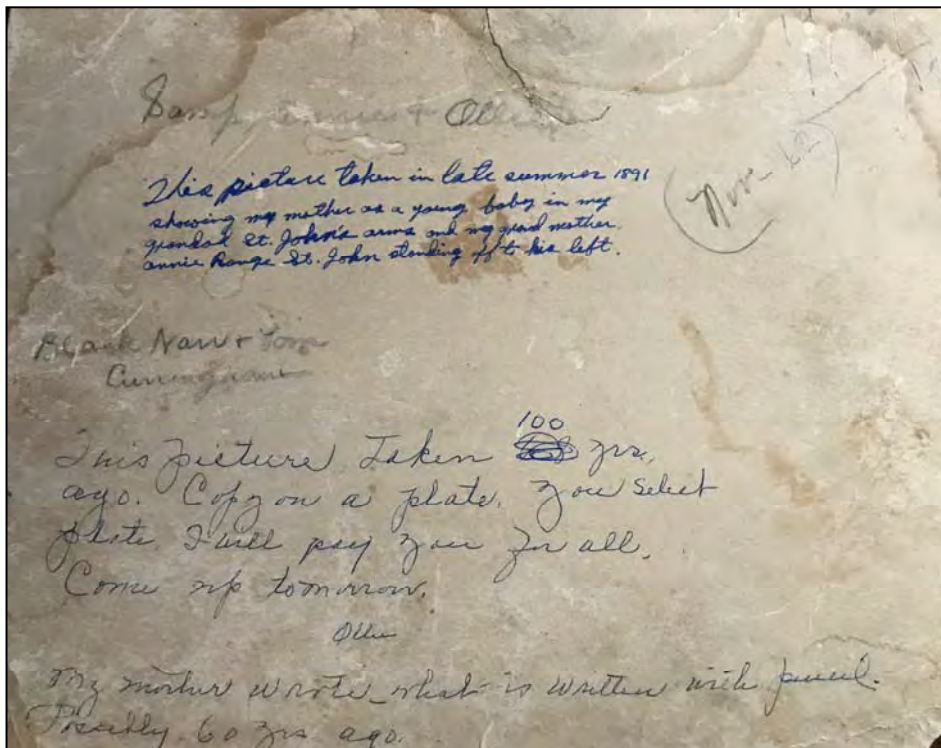 Samp, Annie + Ollie
(Nov-62)
This picture taken in late summer 1891
showing my mother as a young baby in my
grandad St. John's arms and my grand mother
annie Range St. John standing off to his left.
Black Nan + Tom
Cunningham
100
This picture Taken yrs.
ago. Copy on a plate. You select
plate. I will pay you for all.
Come up tomorrow.
Ollie
My mother wrote what is written with pencil.
Possibly 60 yrs ago.